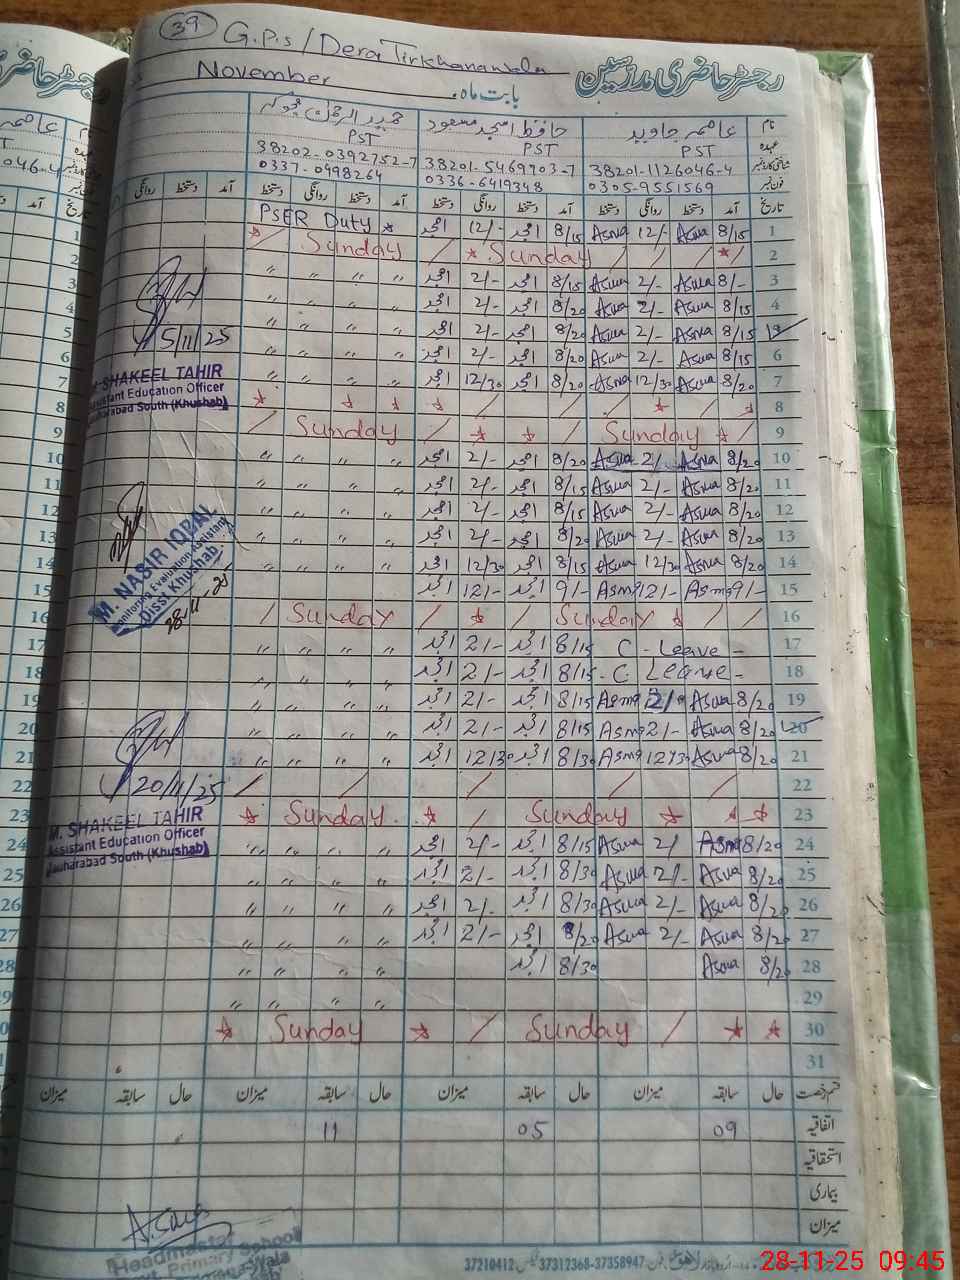 39 G.P.S / Dera Tirkhananwala
رجسٹر حاضری مدرسین
بابت ماہ November
نام عاصمہ جاوید حافظ امجد مسعود
عہدہ PST PST PST
شناختی کارڈ نمبر 38201-1126046-4 38201-5469903-7 38202-0392752-7
فون نمبر 0305-9551569 0336-6419348 0337-0498264
تاریخ آمد دستخط روانگی دستخط آمد دستخط روانگی دستخط آمد دستخط روانگی دستخط آمد دستخط روانگی
1 8/15 Asma 12/- Asma 8/15 امجد 12/- امجد PSER Duty
2 Sunday Sunday
3 8/- Asma 2/- Asma 8/15 امجد 2/- امجد 〃 〃 〃 〃
4 8/15 Asma 2/- Asma 8/20 امجد 2/- امجد 〃 〃 〃 〃
5 8/15 Asma 2/- Asma 8/20 امجد 2/- امجد 〃 〃 〃 〃
5/11/25
6 8/15 Asma 2/- Asma 8/20 امجد 2/- امجد 〃 〃 〃 〃
7 8/20 Asma 12/30 Asma 8/20 امجد 12/30 امجد 〃 〃 〃 〃
SHAKEEL TAHIR
Assistant Education Officer
Jauharabad South (Khushab)
8
9 Sunday Sunday
10 8/20 Asma 2/- Asma 8/20 امجد 2/- امجد 〃 〃 〃 〃
11 8/20 Asma 2/- Asma 8/15 امجد 2/- امجد 〃 〃 〃 〃
12 8/20 Asma 2/- Asma 8/15 امجد 2/- امجد 〃 〃 〃 〃
13 8/20 Asma 2/- Asma 8/20 امجد 2/- امجد 〃 〃 〃 〃
14 8/20 Asma 12/30 Asma 8/15 امجد 12/30 امجد 〃 〃 〃 〃
15 9/- Asma 12/- Asma 9/- امجد 12/- امجد 〃 〃 〃 〃
M. NASIR IQBAL
Monitoring Evaluation Assistant
Distt Khushab
28-11-25
16 Sunday Sunday
17 C - Leave - 8/15 امجد 2/- امجد 〃 〃 〃 〃
18 - C Leave - 8/15 امجد 2/- امجد 〃 〃 〃 〃
19 8/20 Asma 2/- Asma 8/15 امجد 2/- امجد 〃 〃 〃 〃
20 8/20 Asma 2/- Asma 8/15 امجد 2/- امجد 〃 〃 〃 〃
21 8/20 Asma 12/30 Asma 8/30 امجد 12/30 امجد 〃 〃 〃 〃
20/11/25
22
23 Sunday Sunday
M. SHAKEEL TAHIR
Assistant Education Officer
Jauharabad South (Khushab)
24 8/20 Asma 2/ Asma 8/15 امجد 2/- امجد 〃 〃 〃 〃
25 8/20 Asma 2/- Asma 8/30 امجد 2/- امجد 〃 〃 〃 〃
26 8/20 Asma 2/- Asma 8/30 امجد 2/- امجد 〃 〃 〃 〃
27 8/20 Asma 2/- Asma 8/20 امجد 2/- امجد 〃 〃 〃 〃
28 8/20 Asma 8/30 امجد 〃 〃 〃 〃
29 〃 〃 〃 〃
30 Sunday Sunday
31
قسم رخصت حال سابقہ میزان حال سابقہ میزان حال سابقہ میزان حال سابقہ میزان
اتفاقیہ 09 05 11
استحقاقیہ
بیماری
میزان
Headmaster
Primary School
37210412 37312368-37358947
28-11-25 09:45